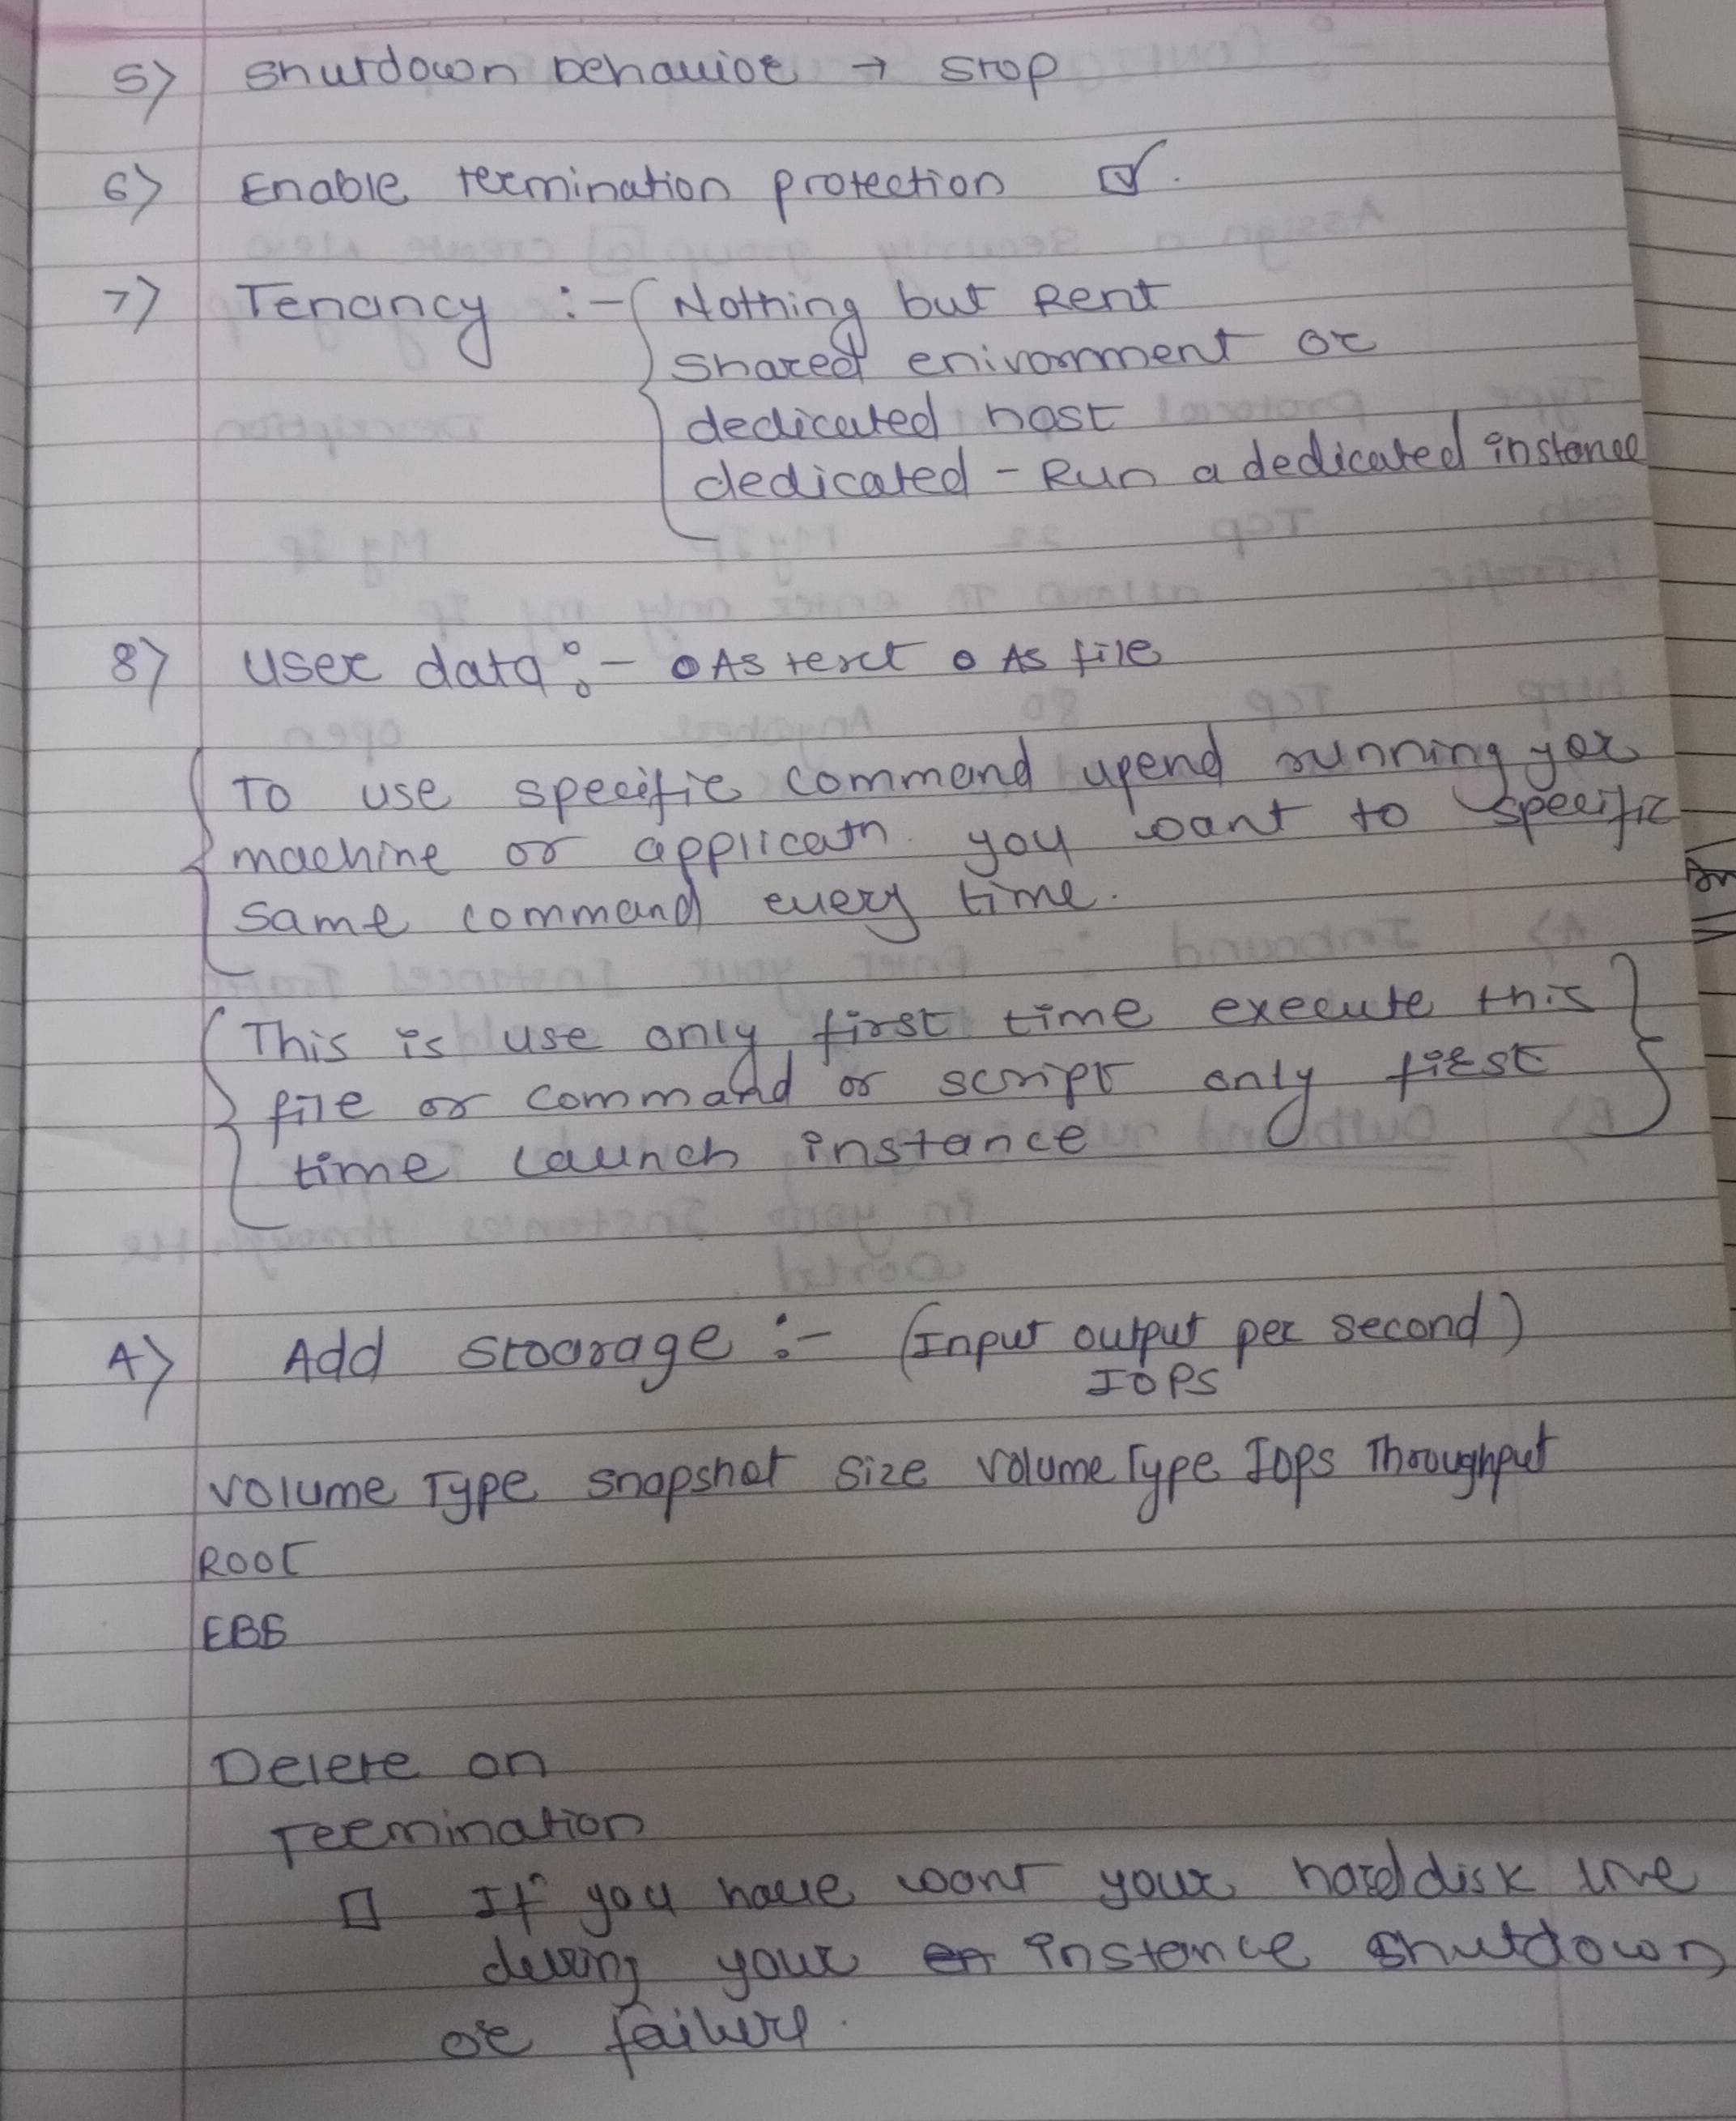 5) Shutdown behavior → Stop
6) Enable termination protection ☑.
7) Tenancy :- Nothing but Rent
shared enivornment or
dedicated host
dedicated - Run a dedicated instance
8) User data :- o As text o As file
To use specific command upend running yor
machine or applicatn. you want to specific
same command every time.
This is use only first time execute this
file or command or script only first
time launch instance
A) Add stoarage :- (Input output per second)
IOPS
Volume Type snapshot Size Volume Type Iops Throughput
ROOT
EBS
Delete on
Termination
☐ If you have want your harddisk live
during your instance shutdown
or failure.